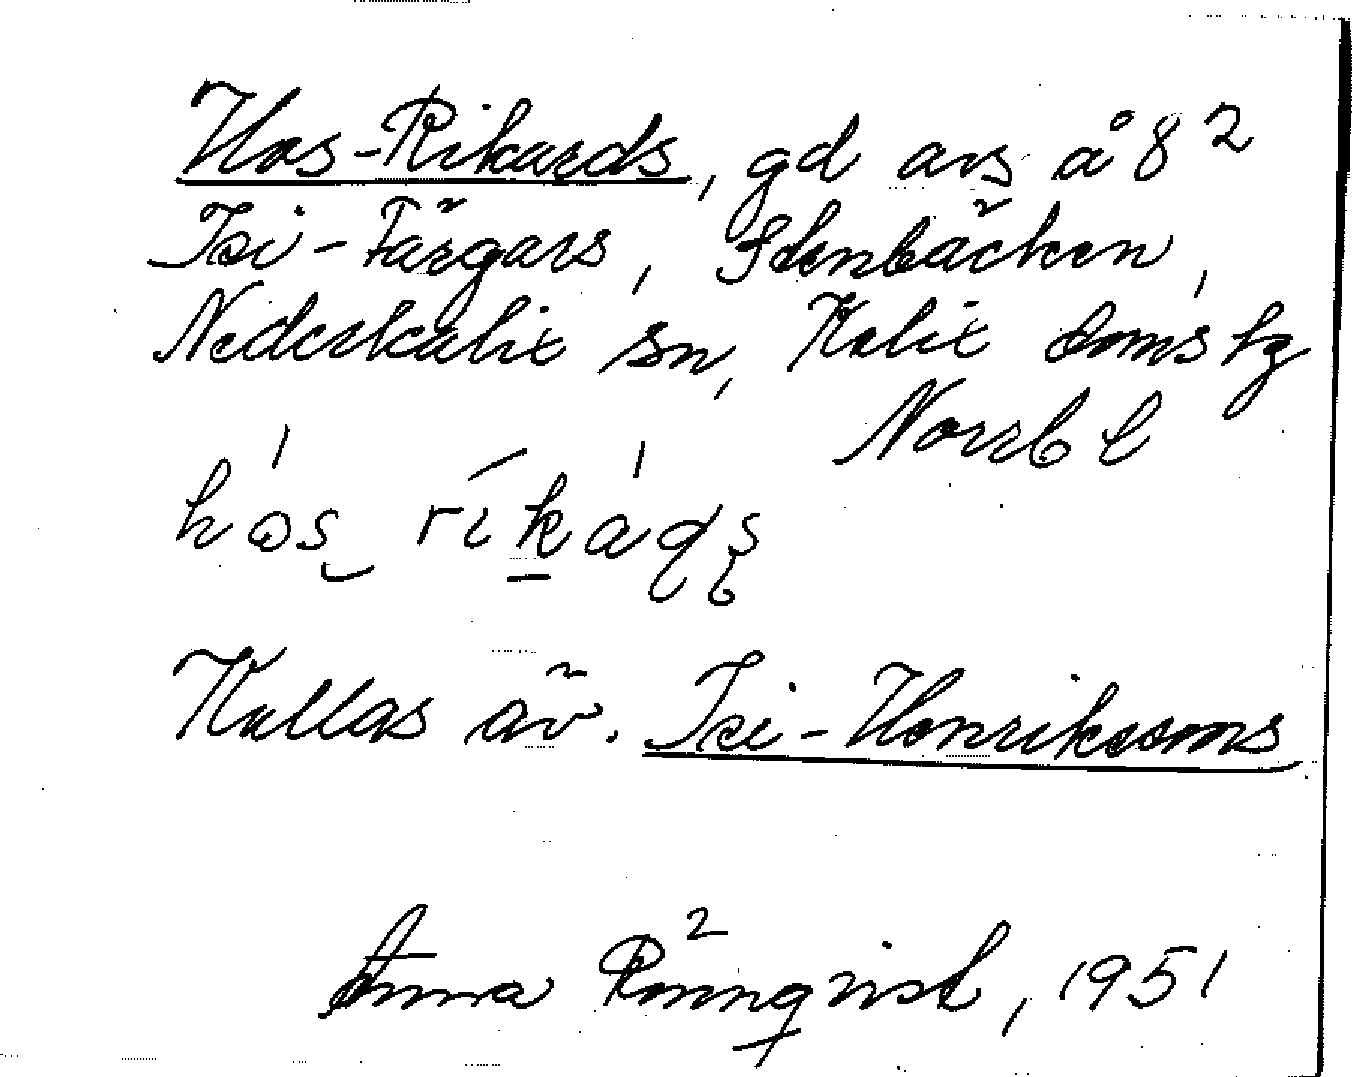 Hos-Rikards, gd avs å 8²
Isi-Färgars, Stenbäcken,
Nederkalix sn, Kalix domstg
Norrb l
hós ríkáḍs
Kallas äv. Isi-Henrikssons
Anna Rönnqvist, 1951